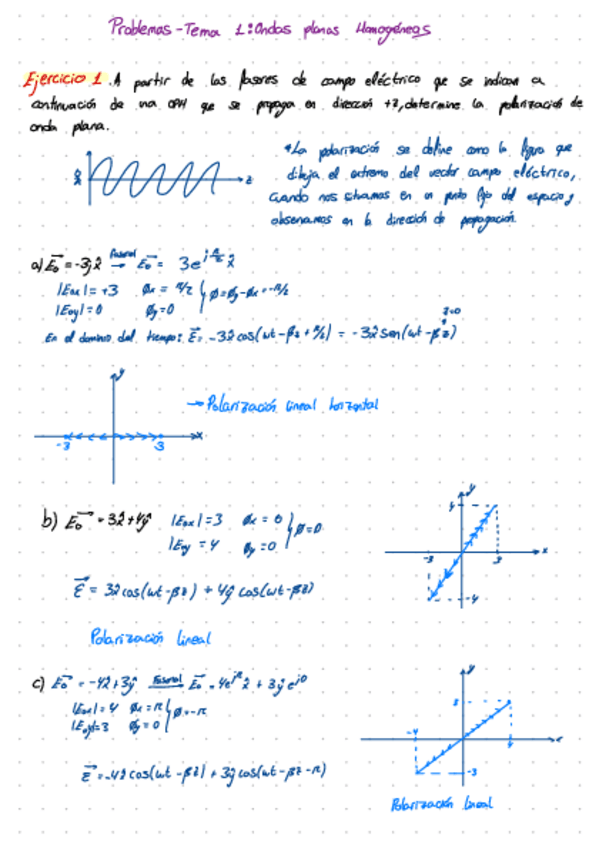 Problemas - Tema 1: Ondas planas Homogéneas
Ejercicio 1. A partir de los fasores de campo eléctrico que se indican a
continuación de una OPH que se propaga en dirección +z, determine la polarización de
onda plana.
*La polarización se define como la figura que
dibuja el extremo del vector campo eléctrico,
cuando nos situamos en un punto fijo del espacio y
observamos en la dirección de propagación
z
a) E₀ = -3j x̂ → Fasorial E₀ = 3e^{j π/2} x̂
|E₀x| = +3 Øx = π/2
|E₀y| = 0 Øy = 0
} Ø = Øy - Øx = -π/2
z=0
En el dominio del tiempo: E = -3x̂ cos(wt - βz + π/2) = -3x̂ sen(wt - βz)
y
→ Polarización lineal horizontal
x
-3 3
b) E₀ = 3x̂ + 4ŷ |E₀x| = 3 Øx = 0
|E₀y = 4 Øy = 0
} Ø = 0
y
4
-3 3 x
-4
E = 3x̂ cos(wt - βz) + 4ŷ cos(wt - βz)
Polarización lineal
c) E₀ = -4x̂ + 3ŷ Fasorial E₀ = 4e^{jπ} x̂ + 3ŷ e^{j0}
|E₀x| = 4 Øx = π
|E₀y| = 3 Øy = 0
} Ø = -π
y
3
-4 4 x
-3
E = -4x̂ cos(wt - βz) + 3ŷ cos(wt - βz - π)
Polarización lineal